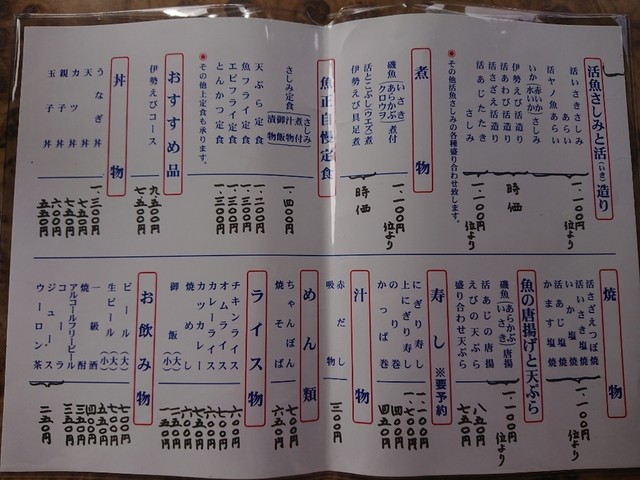 活魚さしみと活(いき)造り
活いさきさしみ
活ヤノ魚あらい
いか(赤いか)(水いか)さしみ
伊勢えび活造り
活あわび活造り
活さざえ活造り
活あじたたき
さしみ
一、一〇〇円位より
時価
一、一〇〇円位より
その他活魚さしみの各種盛り合わせ致します。
煮物
磯魚(いさき)(あらかぶ)(クロウオ)煮付
活とこぶし(ウエズ)煮
活伊勢えび具足煮
一、一〇〇円位より
時価
魚正自慢定食
さしみ定食(さしみ 煮付 汁物 御飯 漬物)
天ぷら定食
魚フライ定食
エビフライ定食
とんかつ定食
一、四〇〇円
一、二〇〇円
一、三〇〇円
一、三〇〇円
その他上定食も承ります。
おすすめ品
伊勢えびコース
九、五〇〇円
七、五〇〇円
丼物
うなぎ丼
天丼
カツ丼
親子丼
玉子丼
一、三〇〇円
七五〇円
七五〇円
六〇〇円
五五〇円
焼物
活さざえつぼ焼
活いさき塩焼
いか塩焼
活あじ塩焼
かます塩焼
一、一〇〇円位より
魚の唐揚げと天ぷら
磯魚(あらかぶ)(いさき)唐揚
活あじの唐揚
えびの天ぷら
盛り合わせ天ぷら
一、一〇〇円位より
八五〇円
七五〇円
寿し※要予約
にぎり寿し
上にぎり寿し
のり巻
かっぱ巻
一、一〇〇円
一、七〇〇円
四〇〇円
四五〇円
汁物
赤だし
吸物
三〇〇円
めん類
ちゃんぽん
焼そば
七〇〇円
六五〇円
ライス物
チキンライス
オムライス
カレーライス
カツカレー
焼めし
御飯(大)(小)
六〇〇円
お飲み物
ビール(大)
生ビール(大)(小)
一級酒
焼酎
アルコールフリービール
コーラ
ジュース
ウーロン茶
七〇〇円
二五〇円